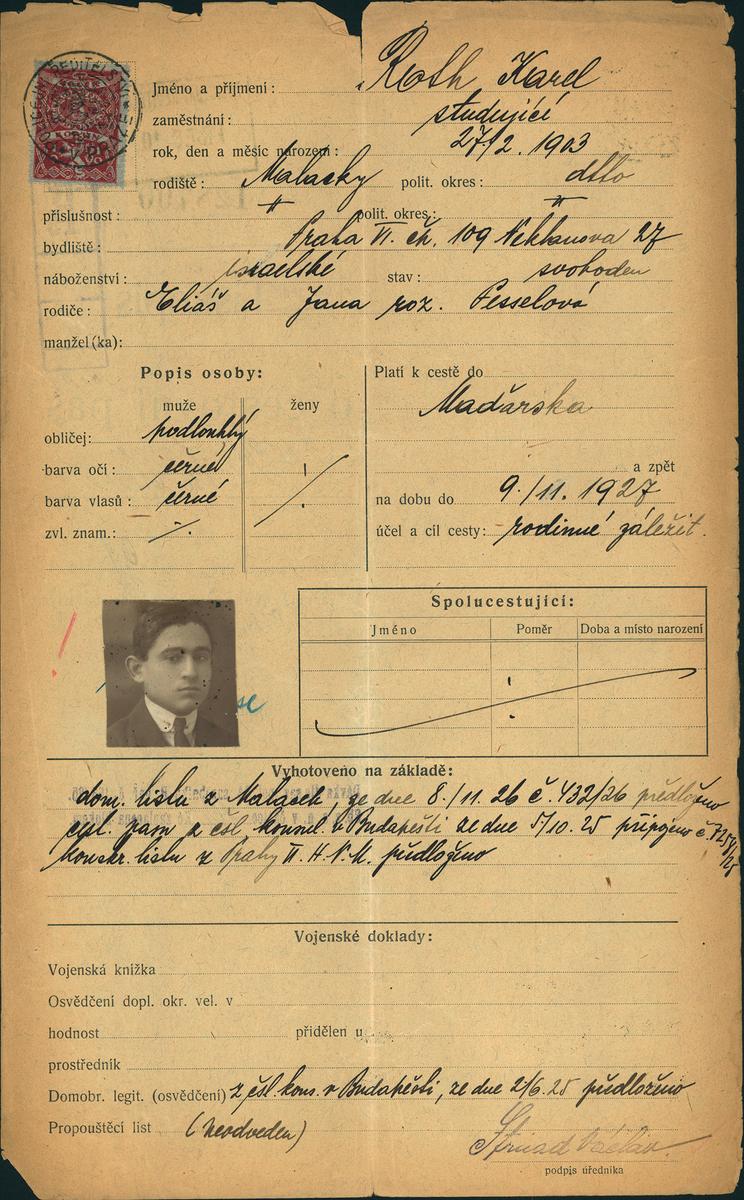 Jméno a příjmení: Roth Karel
zaměstnání: studující
rok, den a měsíc narození: 27/2. 1903
rodiště: Malacky polit. okres: dtto
příslušnost: " polit. okres: "
bydliště: Praha VI. čp. 109 Neklanova 27
náboženství: israelské stav: svoboden
rodiče: Eliáš a Jana roz. Pesselová
manžel(ka):
Popis osoby:
muže ženy
obličej: podlouhlý
barva očí: černé
barva vlasů: černé
zvl. znam.: -/.
Platí k cestě do
Maďarska
a zpět
na dobu do 9./11. 1927
účel a cíl cesty: rodinné záležit.
Spolucestující:
Jméno Poměr Doba a místo narození
Vyhotoveno na základě:
dom. listu z Malacek, ze dne 8./11. 26 č. 432/26 předloženo
čsl. pasu z čsl. konsul. v Budapešti ze dne 5/10. 25 připojeno č.
konskr. listu z Prahy II. H.N.M. předloženo
Vojenské doklady:
Vojenská knížka
Osvědčení dopl. okr. vel. v
hodnost přidělen u
prostředník
Domobr. legit. (osvědčení) z čsl. kons. v Budapešti, ze dne 2/6. 25 předloženo
Propouštěcí list (neodveden)
Strnad Václav
podpis úředníka